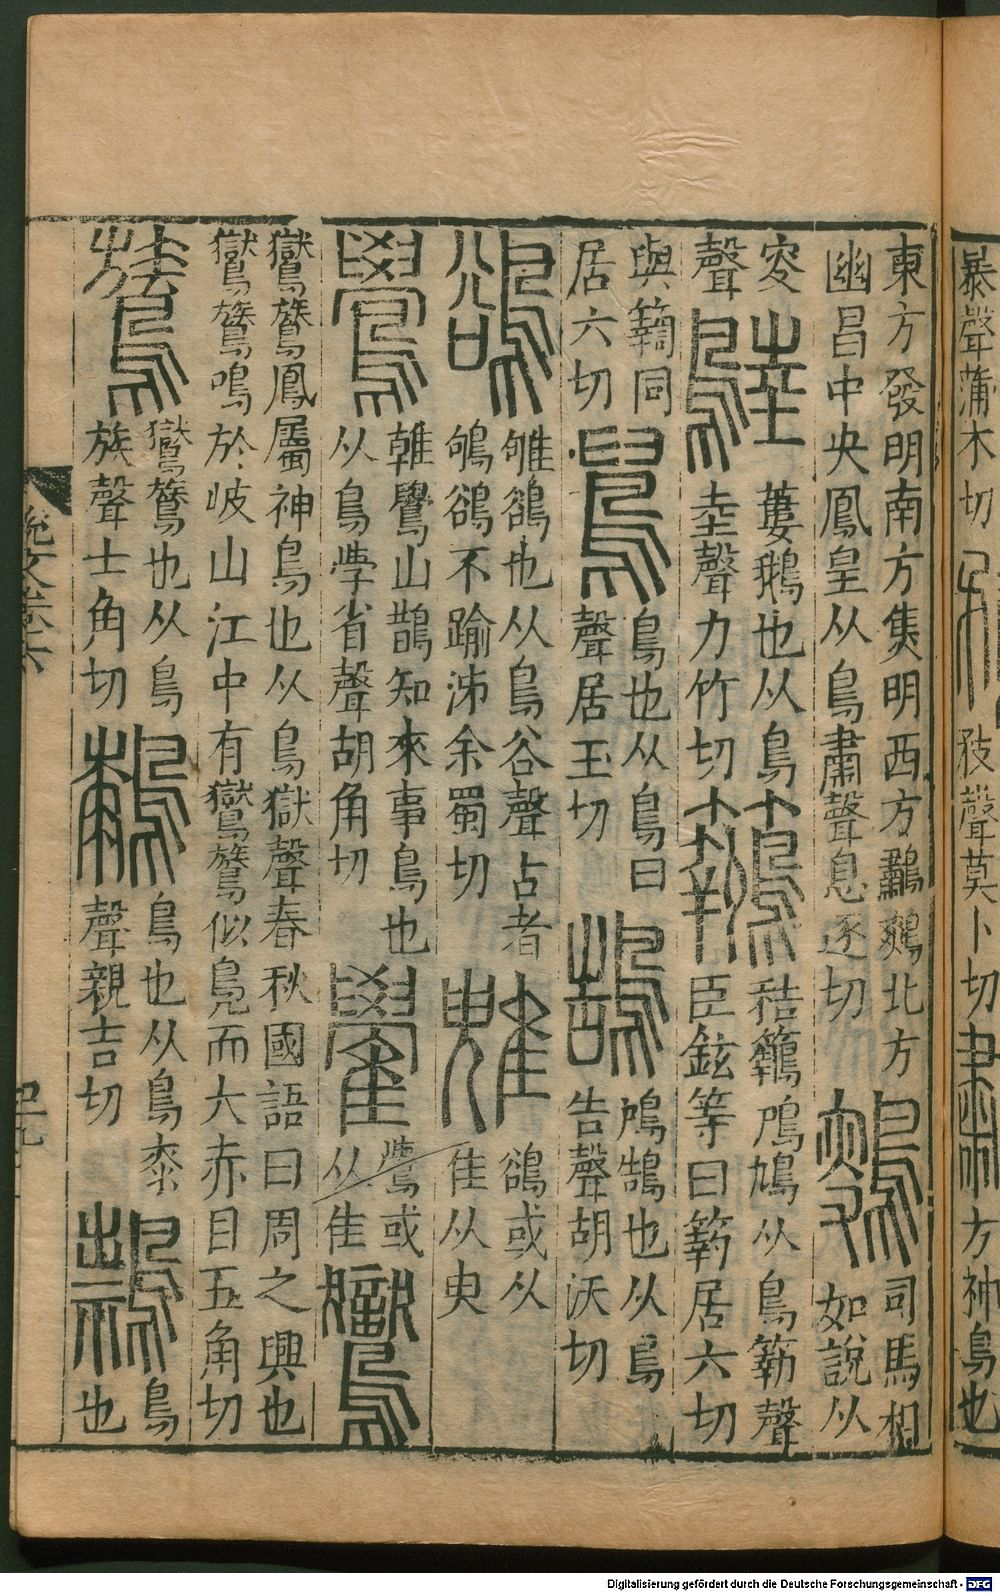 暴聲蒲木切鶩敄聲莫卜切鷫方神鳥也
東方發明南方焦明西方鷫鷞北方
幽昌中央鳳皇从鳥肅聲息逐切
司馬相
如說从
叜
聲
鵱
蔞鵝也从鳥
坴聲力竹切
𪇳
秸𪇳鳲鳩从鳥𥷚聲
臣鉉等曰𥷚居六切
與𥷚同
居六切
鳥也从鳥臼
聲居玉切
鵠
鴻鵠也从鳥
告聲胡沃切
鵒
雊鵒也从鳥谷聲古者
鴝鵒不踰泲余蜀切
鵒或从
隹从臾
鷽
雗鷽山鵲知來事鳥也
从鳥學省聲胡角切
雤
鷽或
从隹
鸑
鸑鷟鳳屬神鳥也从鳥獄聲春秋國語曰周之興也
鸑鷟鳴於岐山江中有鸑鷟似鳧而大赤目五角切
鷟
鸑鷟也从鳥
族聲士角切
鳥也从鳥桼
聲親吉切
鳥
也
說文卷六
Digitalisierung gefördert durch die Deutsche Forschungsgemeinschaft - DFG